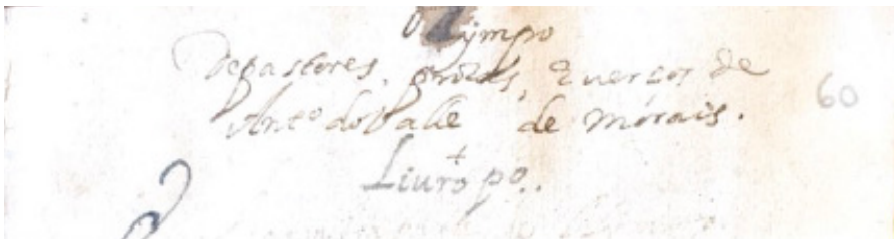 Olympo
De pastores, prozas, & uersos de
Antº do Valle de Morais.
Liuro pº.
60